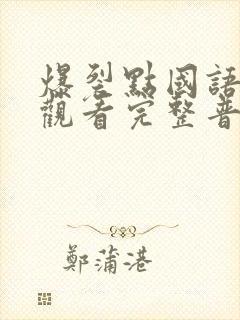 爆裂點國語
觀看完整普
鄭蒲港